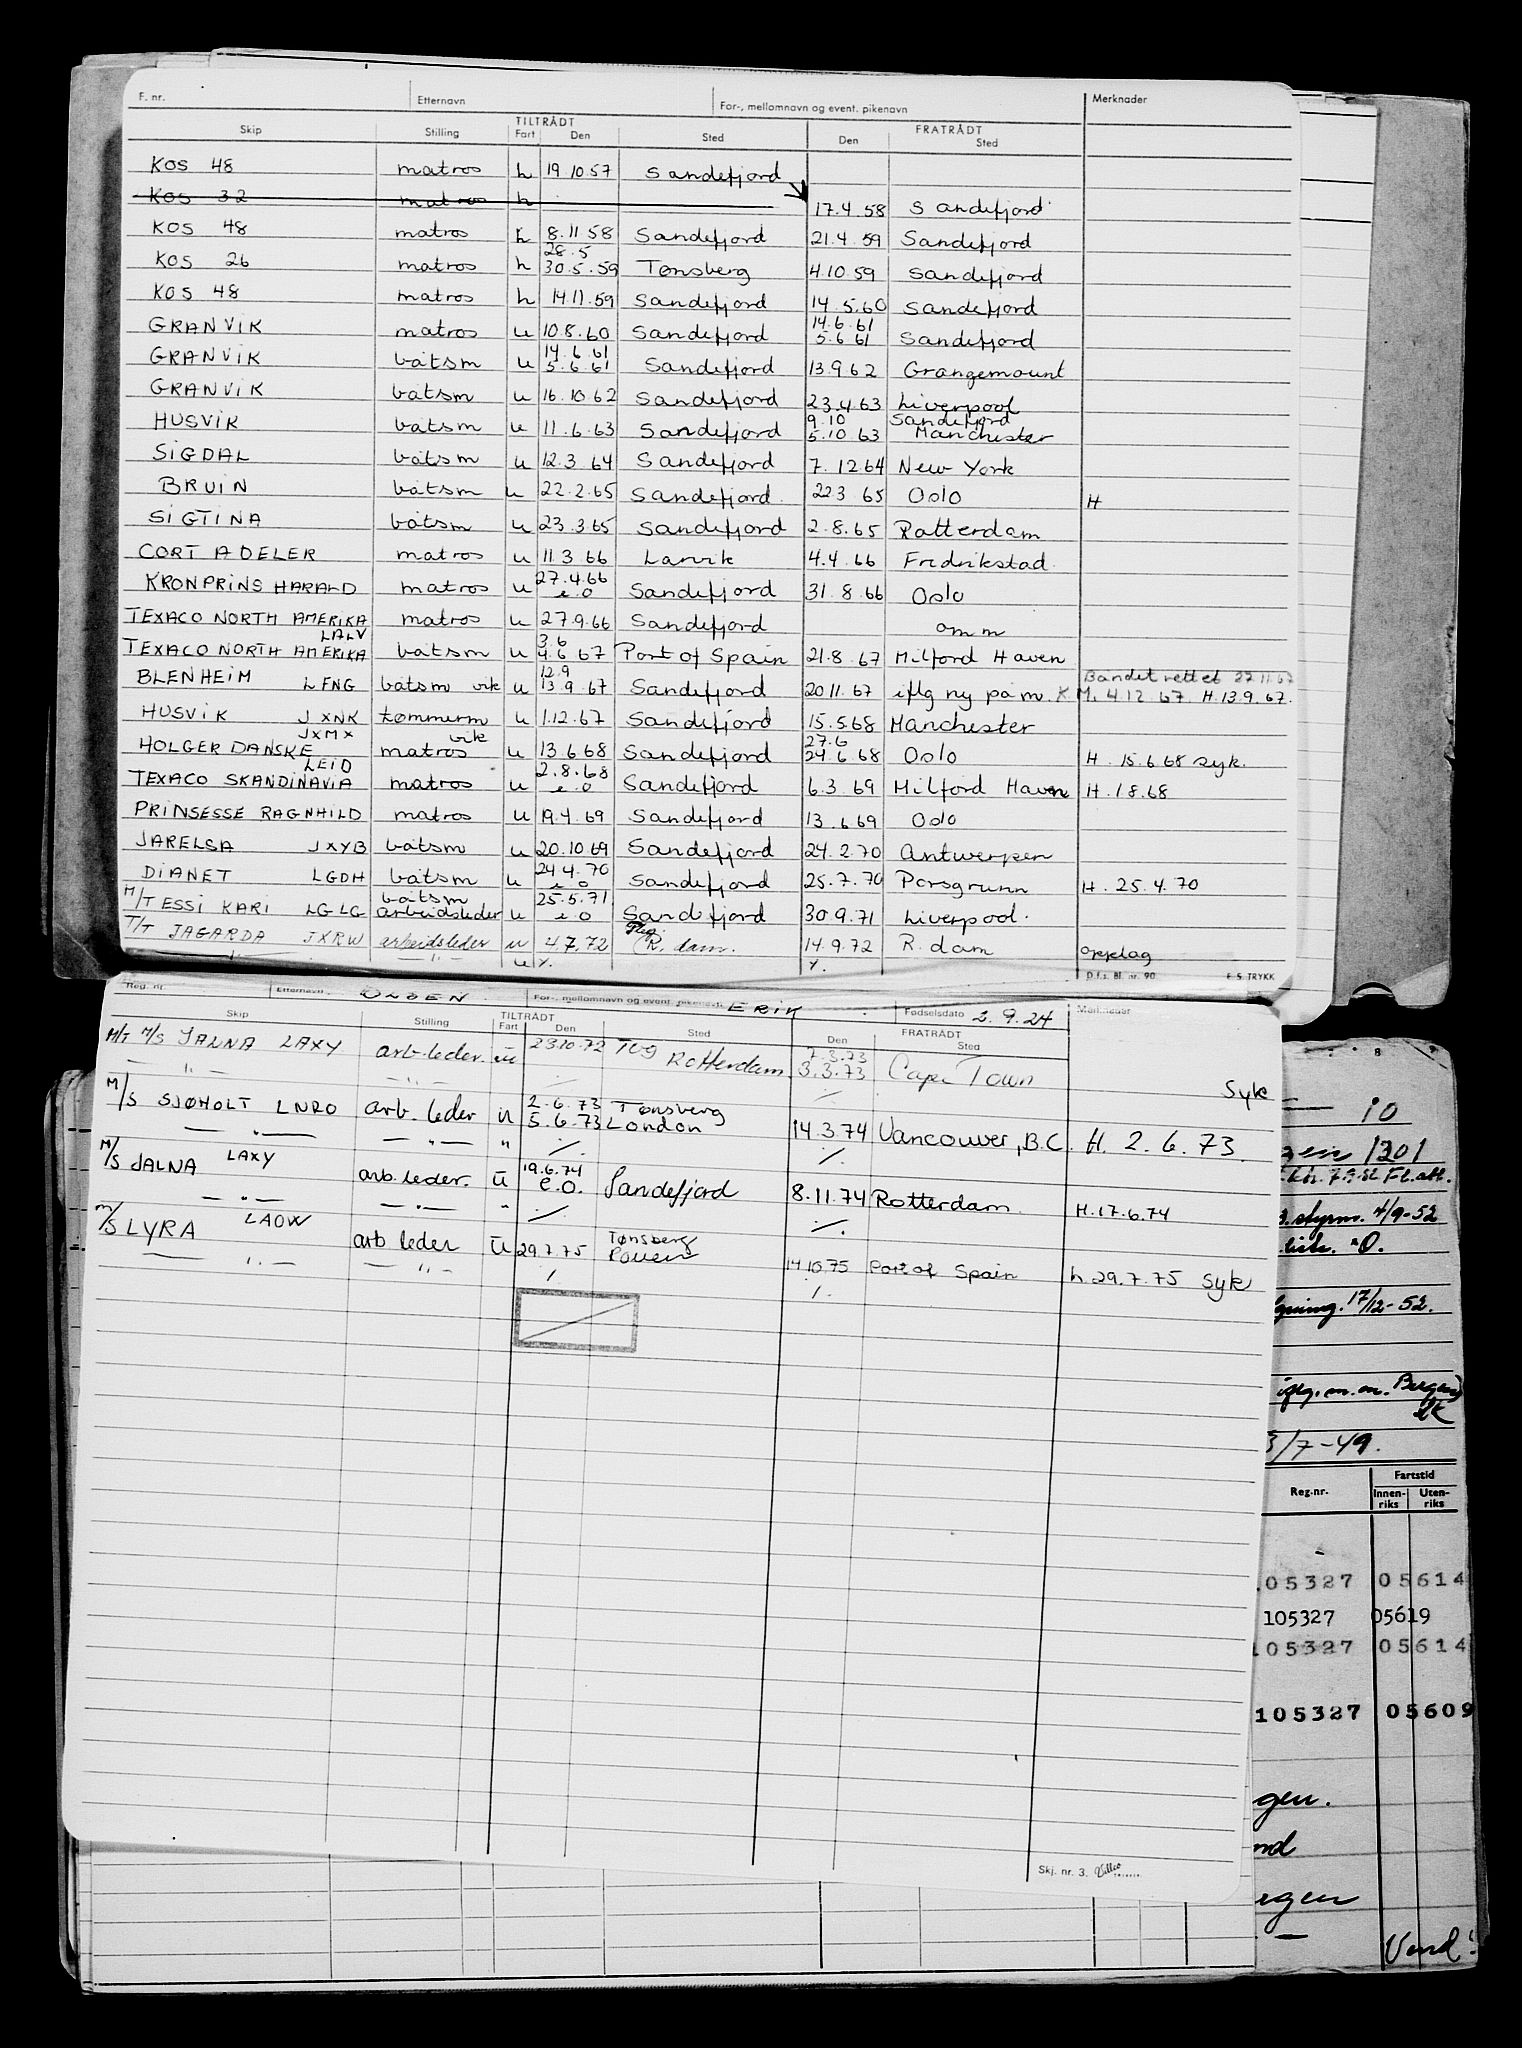 F. nr. Etternavn For-, mellomnavn og event. pikenavn Merknader
TILTRÅDT FRATRÅDT
Skip Stilling Fart Den Sted Den Sted
KOS 48 matros h 19.10.57 Sandefjord
KOS 32 matros h 17.4.58 Sandefjord
KOS 48 matros h 8.11.58 Sandefjord 21.4.59 Sandefjord
28.5
KOS 26 matros h 30.5.59 Tønsberg 4.10.59 Sandefjord
KOS 48 matros h 14.11.59 Sandefjord 14.5.60 Sandefjord
14.6.61
GRANVIK matros u 10.8.60 Sandefjord 5.6.61 Sandefjord
14.6.61
GRANVIK båtsm u 5.6.61 Sandefjord 13.9.62 Grangemount
GRANVIK båtsm u 16.10.62 Sandefjord 23.4.63 Liverpool
9.10 Sandefjord
HUSVIK båtsm u 11.6.63 Sandefjord 5.10.63 Manchester
SIGDAL båtsm u 12.3.64 Sandefjord 7.12.64 New York
BRUIN båtsm u 22.2.65 Sandefjord 22.3.65 Oslo H
SIGTINA båtsm u 23.3.65 Sandefjord 2.8.65 Rotterdam
CORT ADELER matros u 11.3.66 Larvik 4.4.66 Fredrikstad
27.4.66
KRONPRINS HARALD matros u e.o Sandefjord 31.8.66 Oslo
TEXACO NORTH AMERIKA matros u 27.9.66 Sandefjord omm
LALV 3.6
TEXACO NORTH AMERIKA båtsm u 4.6.67 Port of Spain 21.8.67 Milford Haven
12.9 Bandet rettet 27.11.67
BLENHEIM LFNG båtsm vik u 13.9.67 Sandefjord 20.11.67 iflg ny påm. K.M. 4.12.67. H.13.9.67.
HUSVIK JXNK tømmerm u 1.12.67 Sandefjord 15.5.68 Manchester
JXMX vik 27.6
HOLGER DANSKE matros u 13.6.68 Sandefjord 24.6.68 Oslo H. 15.6.68 syk.
LEIO 2.8.68
TEXACO SKANDINAVIA matros u e.o Sandefjord 6.3.69 Milford Haven H.1.8.68
PRINSESSE RAGNHILD matros u 19.4.69 Sandefjord 13.6.69 Oslo
JARELSA JXYB båtsm u 20.10.69 Sandefjord 24.2.70 Antwerpen
24.4.70
DIANET LGDH båtsm u e.o Sandefjord 25.7.70 Porsgrunn H. 25.4.70
båtsm 25.5.71
M/T ESSI KARI LGLG arbeidsleder u e.o Sandefjord 30.9.71 Liverpool.
T/T JAGARDA JXRW arbeidsleder u 4.7.72 R.dam. 14.9.72 R.dam opplag
D.f.s. Bl. nr. 90. E. S. TRYKK
Reg. nr. Etternavn OLSEN For-, mellomnavn og event. pikenavn ERIK Fødselsdato 2.9.24 Merknader
TILTRÅDT FRATRÅDT
Skip Stilling Fart Den Sted Den Sted
7.3.73
M/T M/S JALNA LAXY arb.leder u 23.10.72 Rotterdam 3.3.73 Cape Town
Syk
2.6.73 Tønsberg
M/S SJØHOLT LNRO arb. leder u 5.6.73 London 14.3.74 Vancouver, B.C. H. 2.6.73.
19.6.74
M/S JALNA LAXY arb.leder. u e.o. Sandefjord 8.11.74 Rotterdam H.17.6.74
Tønsberg
M/S LYRA LAOW arb leder u 29.7.75 Rouen 14.10.75 Port of Spain h.29.7.75 syk
Skj. nr. 3.
10
1301
styrm. 4/9-52
17/12-52.
iflg. m.m. Bergen
3/7-49.
Fartstid
Reg.nr. Innen-riks Uten-riks
105327 05614
105327 05619
105327 05614
105327 05609
gen.
nd
rgen
Vend!